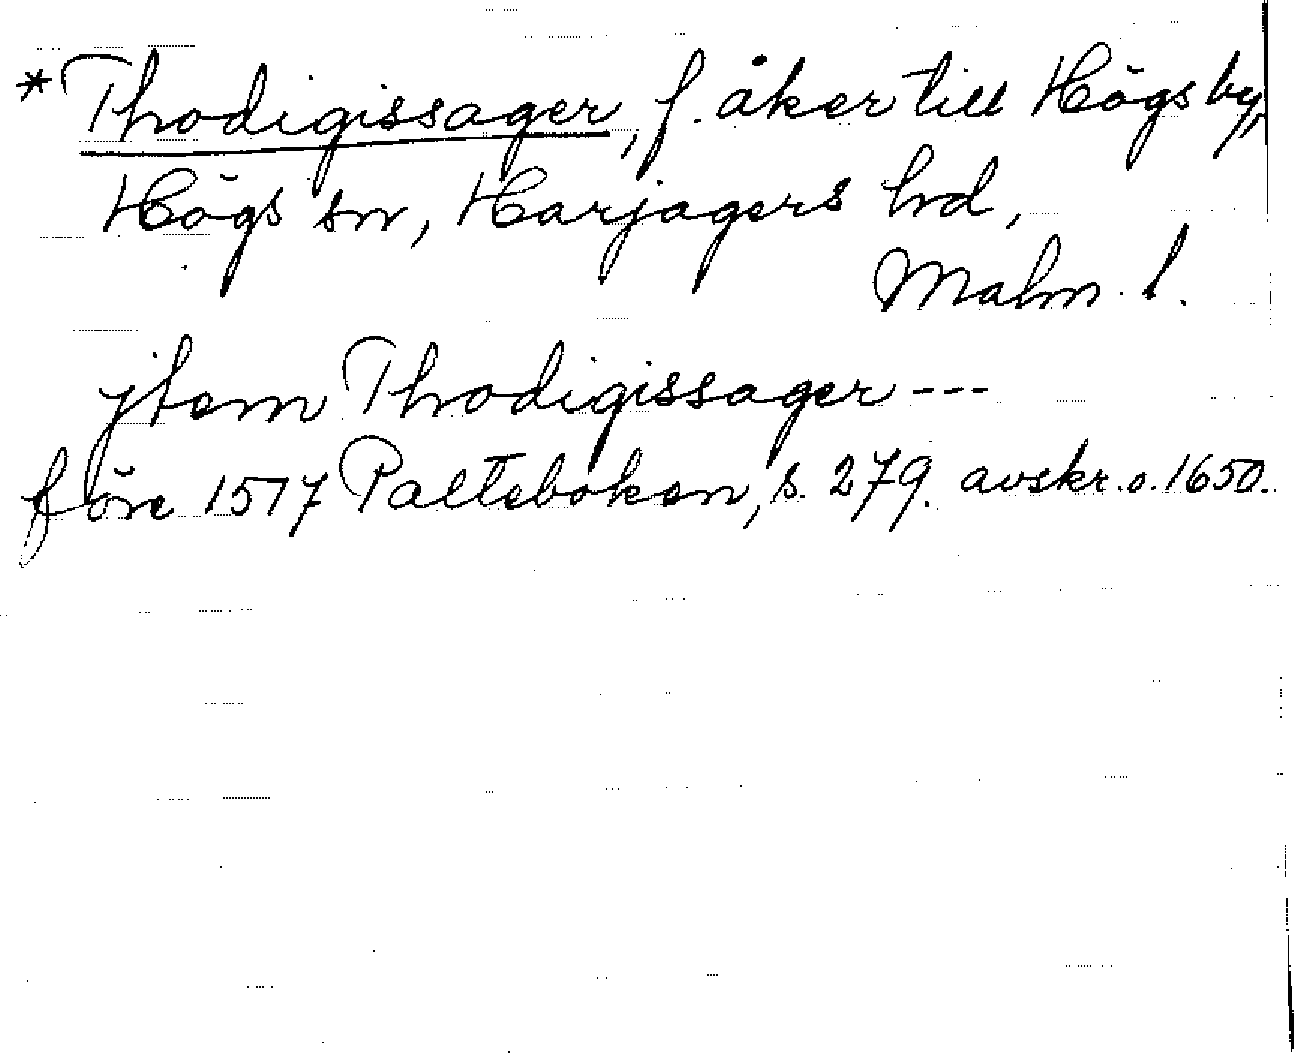 *Thodigissager, f. åker till Högs by,
Högs sn, Harjagers hd,
Malm. l.
ytem Thodigissager ---
före 1517 Palteboken, s. 279. avskr. o. 1650.